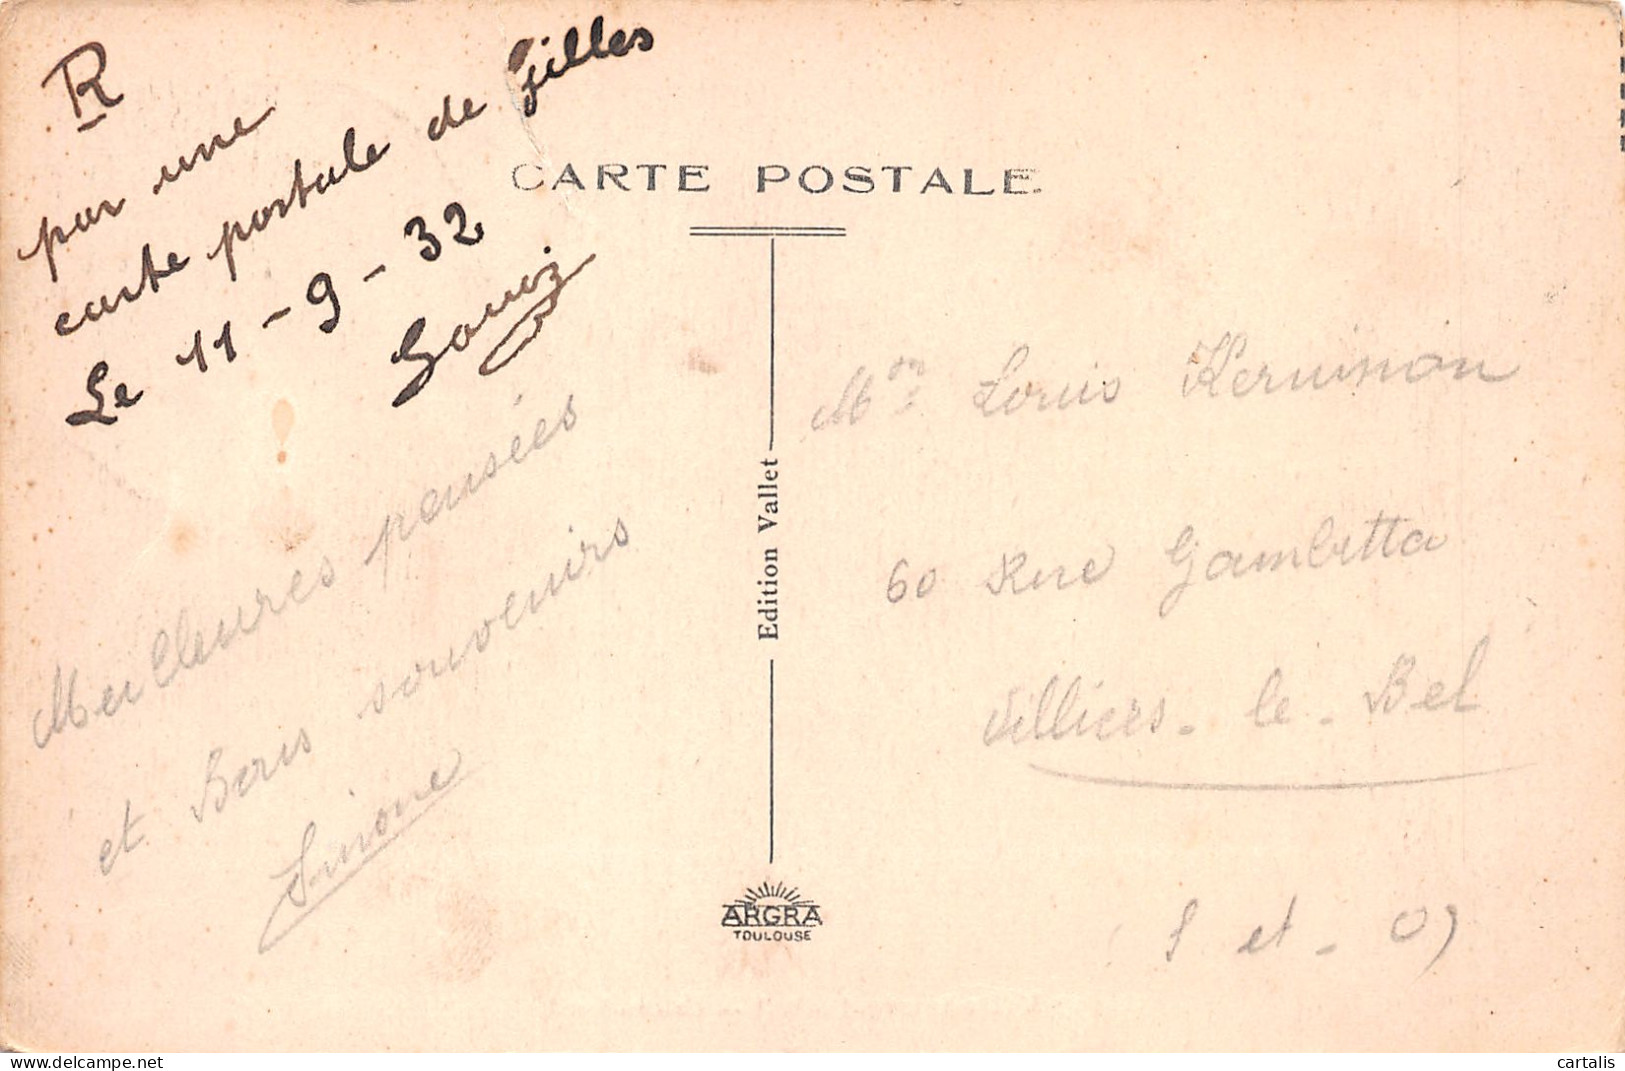 R
par une
carte postale de filles
Le 11-9-32
CARTE POSTALE
Meilleures pensées
et Bons souvenirs
Simone
Edition Vallet
ARGRA
TOULOUSE
Mon Louis Kerninon
60 Rue Gambetta
Villiers-le-Bel
S et - O
cartalis